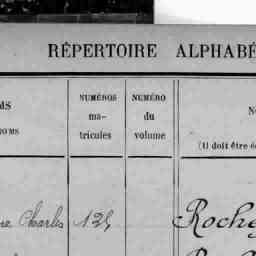 RÉPERTOIRE ALPHABÉ
MS
NUMÉROS
ma-
tricules
NUMÉRO
du
volume
N
OMS
(Il doit être é
re Charles 125
Roche